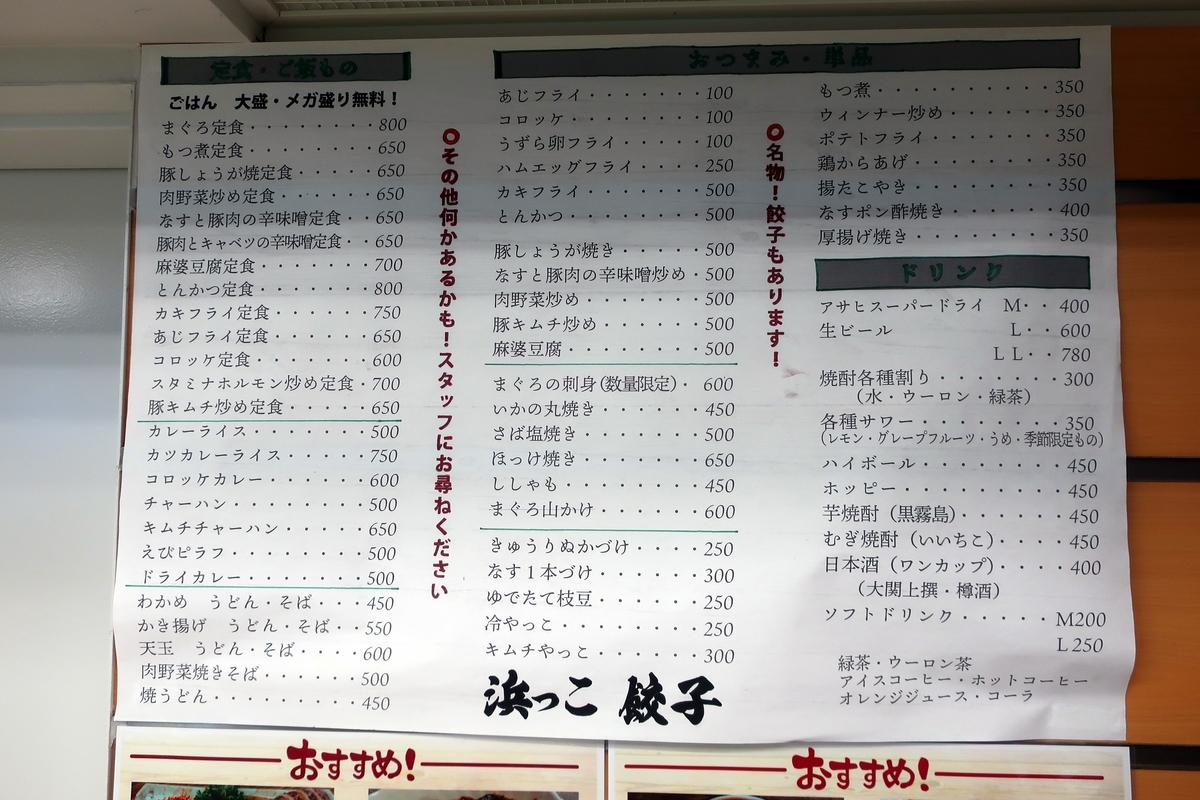 定食・ご飯もの
ごはん　大盛・メガ盛り無料！
まぐろ定食・・・・・・・・800
もつ煮定食・・・・・・・・650
豚しょうが焼定食・・・・・650
肉野菜炒め定食・・・・・・650
なすと豚肉の辛味噌定食・・650
豚肉とキャベツの辛味噌定食・・650
麻婆豆腐定食・・・・・・・700
とんかつ定食・・・・・・・800
カキフライ定食・・・・・・750
あじフライ定食・・・・・・650
コロッケ定食・・・・・・・600
スタミナホルモン炒め定食・700
豚キムチ炒め定食・・・・・650
カレーライス・・・・・・・500
カツカレーライス・・・・・750
コロッケカレー・・・・・・600
チャーハン・・・・・・・・500
キムチチャーハン・・・・・650
えびピラフ・・・・・・・・500
ドライカレー・・・・・・・500
わかめ　うどん・そば・・・450
かき揚げ　うどん・そば・・550
天玉　うどん・そば・・・・600
肉野菜焼きそば・・・・・・500
焼うどん・・・・・・・・・450
○その他何かあるかも！スタッフにお尋ねください
おつまみ・単品
あじフライ・・・・・・・・100
コロッケ・・・・・・・・・100
うずら卵フライ・・・・・・100
ハムエッグフライ・・・・・250
カキフライ・・・・・・・・500
とんかつ・・・・・・・・・500
豚しょうが焼き・・・・・・500
なすと豚肉の辛味噌炒め・・500
肉野菜炒め・・・・・・・・500
豚キムチ炒め・・・・・・・500
麻婆豆腐・・・・・・・・・500
まぐろの刺身(数量限定)・・600
いかの丸焼き・・・・・・・450
さば塩焼き・・・・・・・・500
ほっけ焼き・・・・・・・・650
ししゃも・・・・・・・・・450
まぐろ山かけ・・・・・・・600
きゅうりぬかづけ・・・・・250
なす１本づけ・・・・・・・300
ゆでたて枝豆・・・・・・・250
冷やっこ・・・・・・・・・250
キムチやっこ・・・・・・・300
浜っこ 餃子
○名物！餃子もあります！
もつ煮・・・・・・・・・・350
ウィンナー炒め・・・・・・350
ポテトフライ・・・・・・・350
鶏からあげ・・・・・・・・350
揚たこやき・・・・・・・・350
なすポン酢焼き・・・・・・400
厚揚げ焼き・・・・・・・・350
ドリンク
アサヒスーパードライ　M・・400
生ビール　L・・600
ＬＬ・・780
焼酎各種割り・・・・・・・300
（水・ウーロン・緑茶）
各種サワー・・・・・・・・350
（レモン・グレープフルーツ・うめ・季節限定もの）
ハイボール・・・・・・・・450
ホッピー・・・・・・・・・450
芋焼酎（黒霧島）・・・・・450
むぎ焼酎（いいちこ）・・・450
日本酒（ワンカップ）・・・・400
（大関上撰・樽酒）
ソフトドリンク・・・・・M200
L250
緑茶・ウーロン茶
アイスコーヒー・ホットコーヒー
オレンジジュース・コーラ
おすすめ！
おすすめ！